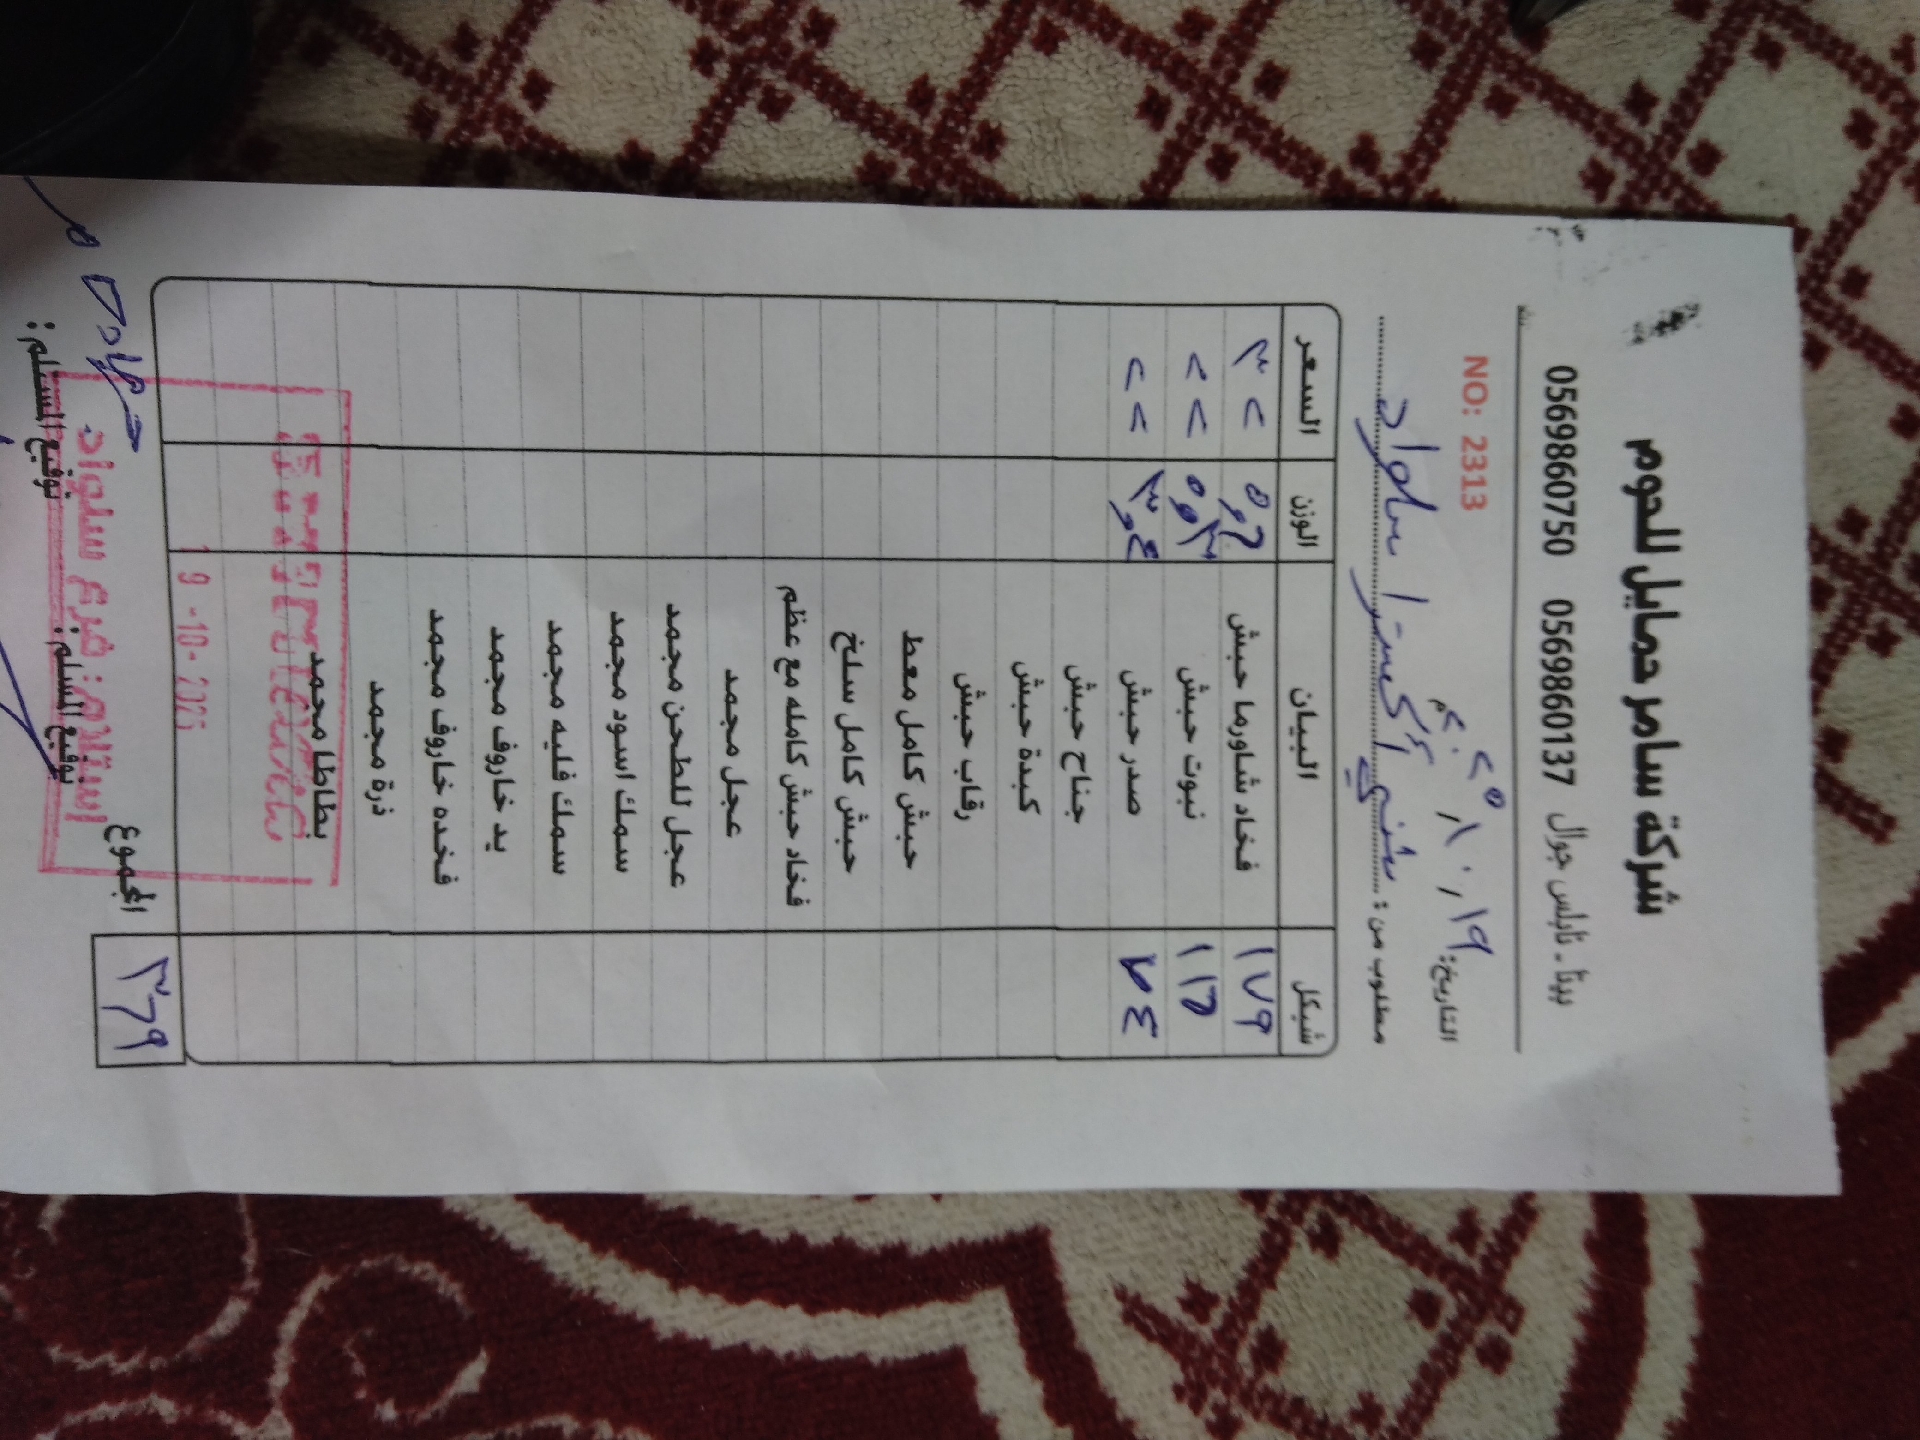 شركة سامر حمايل للحوم
بيتا - نابلس جوال 0569860137 0569860750
NO: 2313
التاريخ: ١٩ / ١٠ / ٢٠٢٥
مطلوب من : سلواد
شيكل البيان الوزن السعر
١٧٩ فخاد شاورما حبش ٣٢
١١٦ نبوت حبش ٢٢
٧٤ صدر حبش ٣,٤ ٢٢
جناح حبش
كبدة حبش
رقاب حبش
حبش كامل معط
حبش كامل سلخ
فخاد حبش كامله مع عظم
عجل مجمد
عجل للطحن مجمد
سمك اسود مجمد
سمك فليه مجمد
يد خاروف مجمد
فخده خاروف مجمد
ذرة مجمد
بطاطا مجمد
19 -10- 2025
المجموع ٣٦٩
استلام: فرع سلواد
توقيع المستلم: